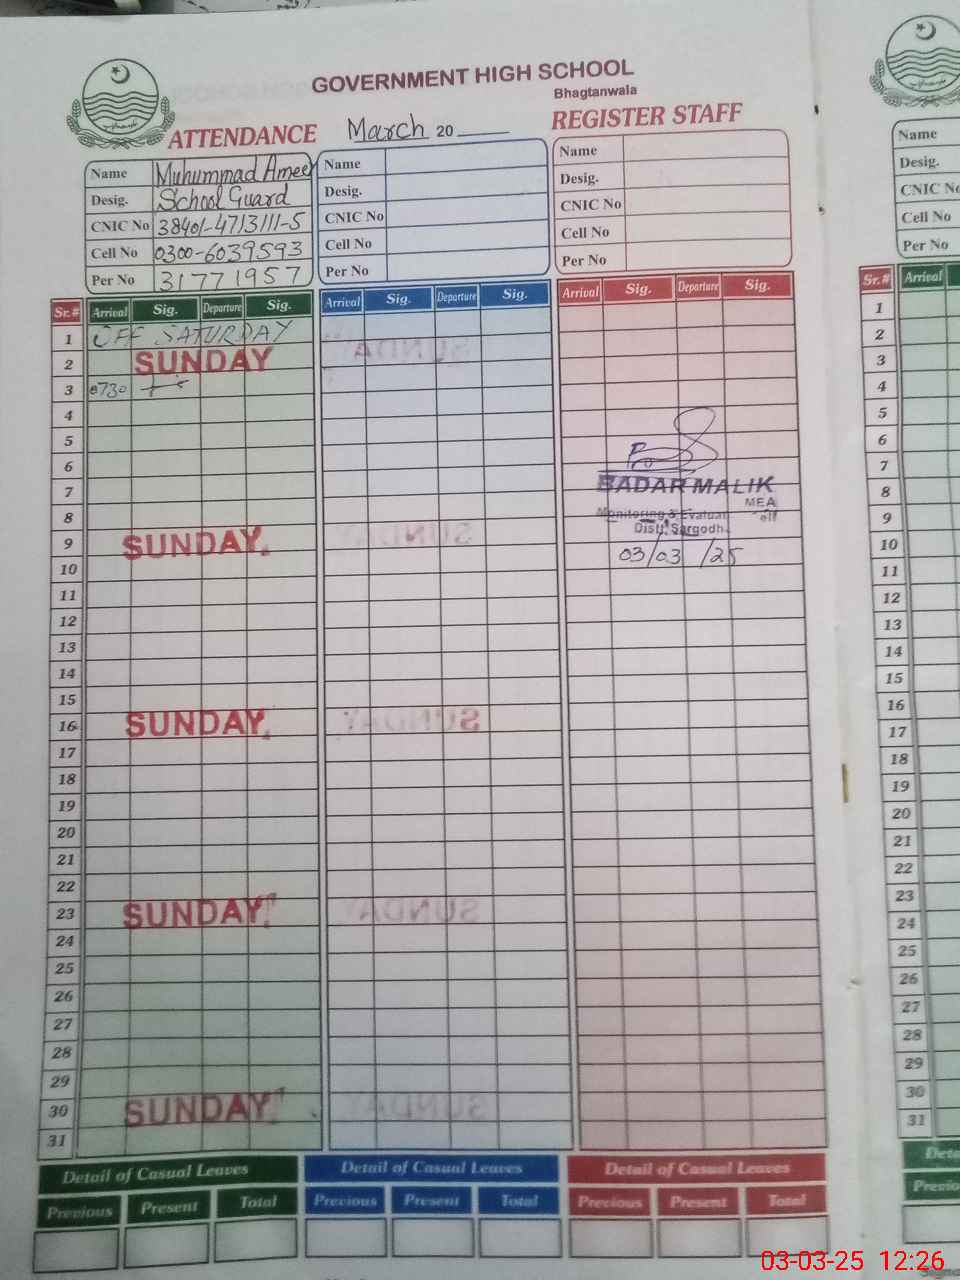 GOVERNMENT HIGH SCHOOL
Bhagtanwala
ATTENDANCE March 20 REGISTER STAFF
Name Muhummad Ameer
Desig. School Guard
CNIC No 38401-4713111-5
Cell No 0300-6039593
Per No 31771957
Name
Desig.
CNIC No
Cell No
Per No
Name
Desig.
CNIC No
Cell No
Per No
Sr.# Arrival Sig. Departure Sig. Arrival Sig. Departure Sig. Arrival Sig. Departure Sig.
1 OFF SATURDAY
2 SUNDAY
3 0730
4
5
6
7
8
9 SUNDAY
10
11
12
13
14
15
16 SUNDAY
17
18
19
20
21
22
23 SUNDAY
24
25
26
27
28
29
30 SUNDAY
31
BADAR MALIK
MEA
Monitoring & Evaluat
Distt. Sargodh
03/03/25
Detail of Casual Leaves Detail of Casual Leaves Detail of Casual Leaves
Previous Present Total Previous Present Total Previous Present Total
Name
Desig.
CNIC No
Cell No
Per No
Sr.# Arrival
1
2
3
4
5
6
7
8
9
10
11
12
13
14
15
16
17
18
19
20
21
22
23
24
25
26
27
28
29
30
31
03-03-25 12:26